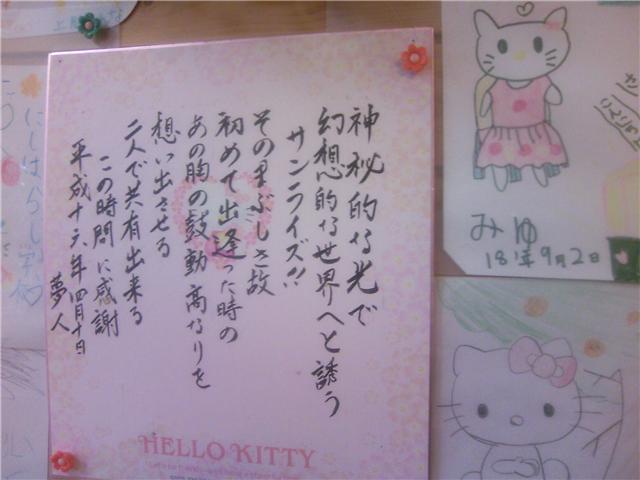 神秘的な光で
幻想的な世界へと誘う
サンライズ!!
そのまぶしさ故
初めて出逢った時の
あの胸の鼓動高なりを
想い出させる
二人で共有出来る
この時間に感謝
平成十六年四月十日
夢人
HELLO KITTY
みゆ
18年9月2日